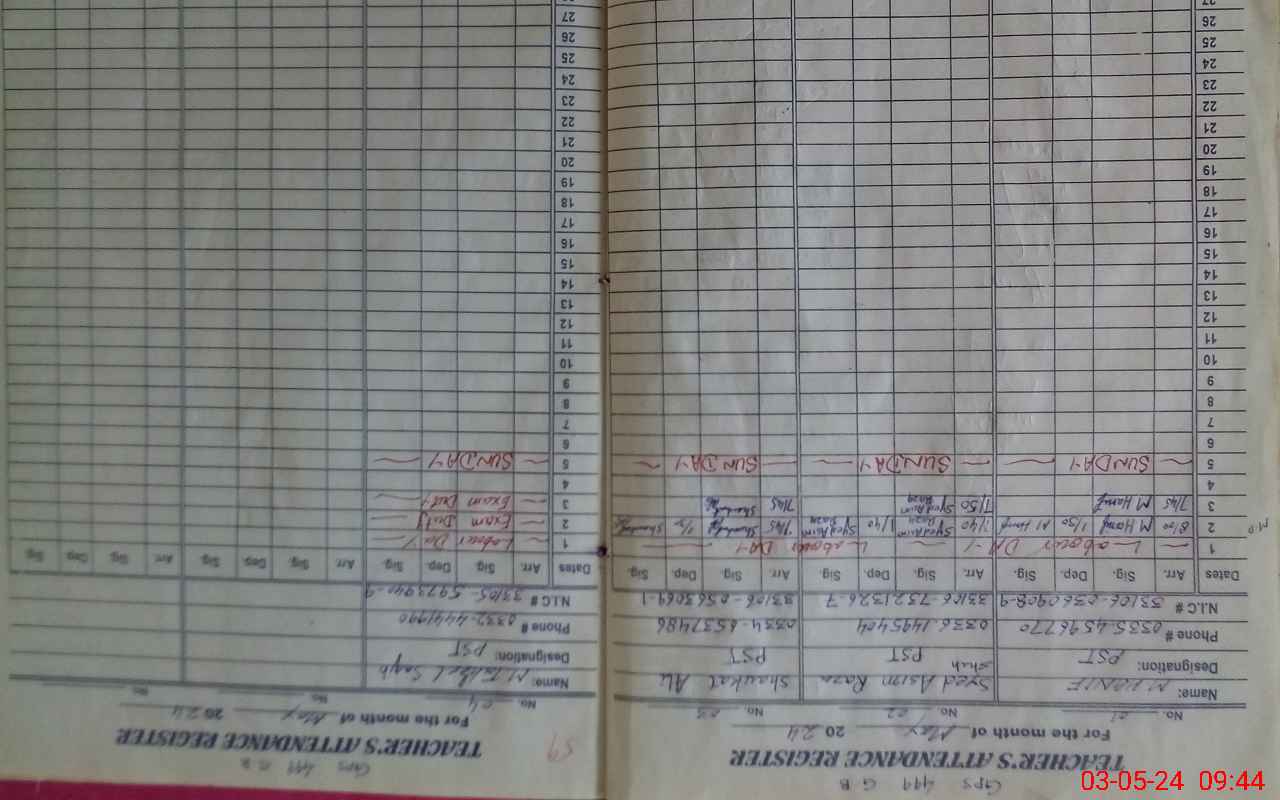 GPS 499 G.B
TEACHER'S ATTENDANCE REGISTER
For the month of May 2024
No. 01 No. 02 No. 03
Name: M HANIF Syed Asim Raza Shah Shaukat Ali
Designation: PST PST PST
Phone # 0335.4596770 0336.1495404 0334-6537486
N.I.C # 33106-0360908-9 33106-7521326-7 33106-0563069-1
Dates Arr. Sig. Dep. Sig. Arr. Sig. Dep. Sig. Arr. Sig. Dep. Sig.
1 Labour DAY Labour DAY
2 8/00 M Hanif 1/30 M Hanif 7/40 Syed Asim Raza 1/40 Syed Asim Raza 7/45 Shaukat
3 7/45 M Hanif 7/50 Syed Asim Raza 7/45 Shaukat
4
5 SUNDAY SUNDAY SUNDAY
6
7
8
9
10
11
12
13
14
15
16
17
18
19
20
21
22
23
24
25
26
27
GPS 499 G.B
59
TEACHER'S ATTENDANCE REGISTER
For the month of May 2024
No. 04 No. No.
Name: M.
Designation: PST
Phone # 0332-4441990
N.I.C # 33105-5973940-9
Dates Arr. Sig. Dep. Sig. Arr. Sig. Dep. Sig. Arr. Sig. Dep. Sig.
1 Labour Day
2 Exam Duty
3 Exam Duty
4
5 SUNDAY
6
7
8
9
10
11
12
13
14
15
16
17
18
19
20
21
22
23
24
25
26
27
03-05-24 09:44